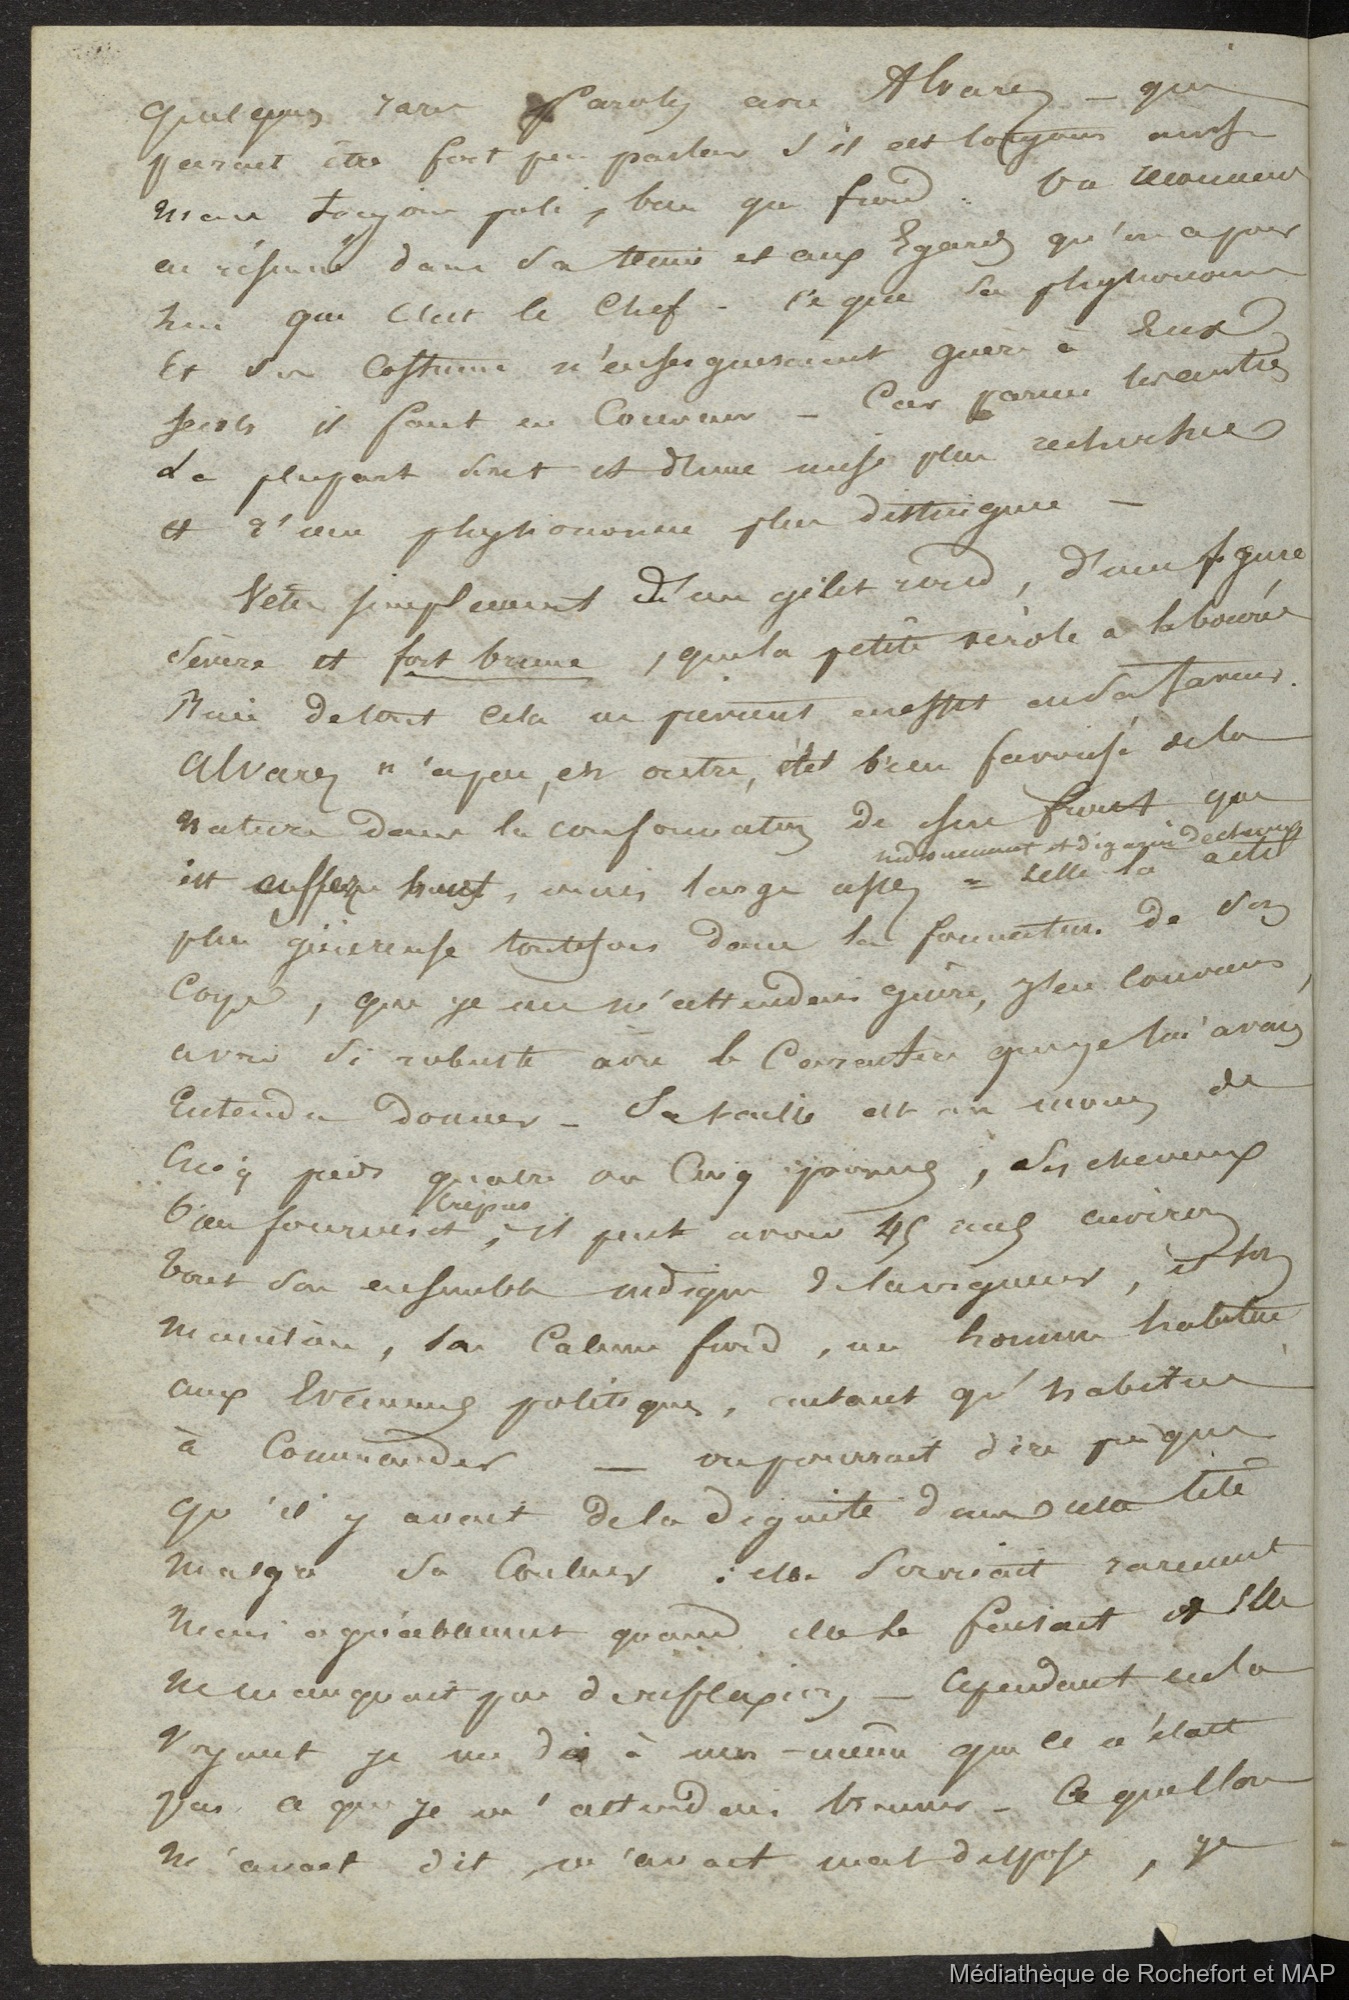 quelques rares paroles avec Alvarez – qui
parait être fort peu parleur s'il est toujours ainsi
mais toujours poli, bien que froid. On reconnait
en résumé dans sa tenue et aux Egards qu'on a pour
lui que c'est le Chef – ce que sa physionomie
Et son Costume n'enseigneraient guère à Eux
seuls il faut en Convenir – Car parmi les autres
La plupart sont et d'une mise plus recherchée
et d'une physionomie plus distinguée –
Vêtu simplement d'un gilet rond, d'une figure
sévère et fort brune, que la petite vérole a labourée
Rien de tout cela ne prévient en effet en sa faveur.
Alvarez n'a pas, en outre, été bien favorisé de la
nature dans la conformation de son front que
indoument et dégarni de cheveux
est assez haut, mais large assez = Elle a été
plus généreuse toutefois dans la formation de son
Corps, que je ne m'attendais guère, j'en conviens,
à voir si robuste avec le Caractère que je lui avais
Entendu donner – Sa taille est au moins de
Cinq pieds quatre ou Cinq pouces, Ses cheveux
crépus
bien fournis et, il peut avoir 45 ans environ
Tout son ensemble indique de la vigueur, et son
maintien, son Calme froid, un homme habitué
aux Evénemens politiques, autant qu'habitué
à Commander — on pourrait dire presque
qu'il y avait de la dignité dans cette tête
malgré sa Couleur : elle souriait rarement
mais agréablement quand elle le faisait et Elle
ne manquait pas de réflexion – Cependant en la
Voyant je me dis à moi-même que ce n'était
pas ce que je m'attendais trouver – Ce que l'on
m'avait dit m'avait mal disposé, je
Médiathèque de Rochefort et MAP